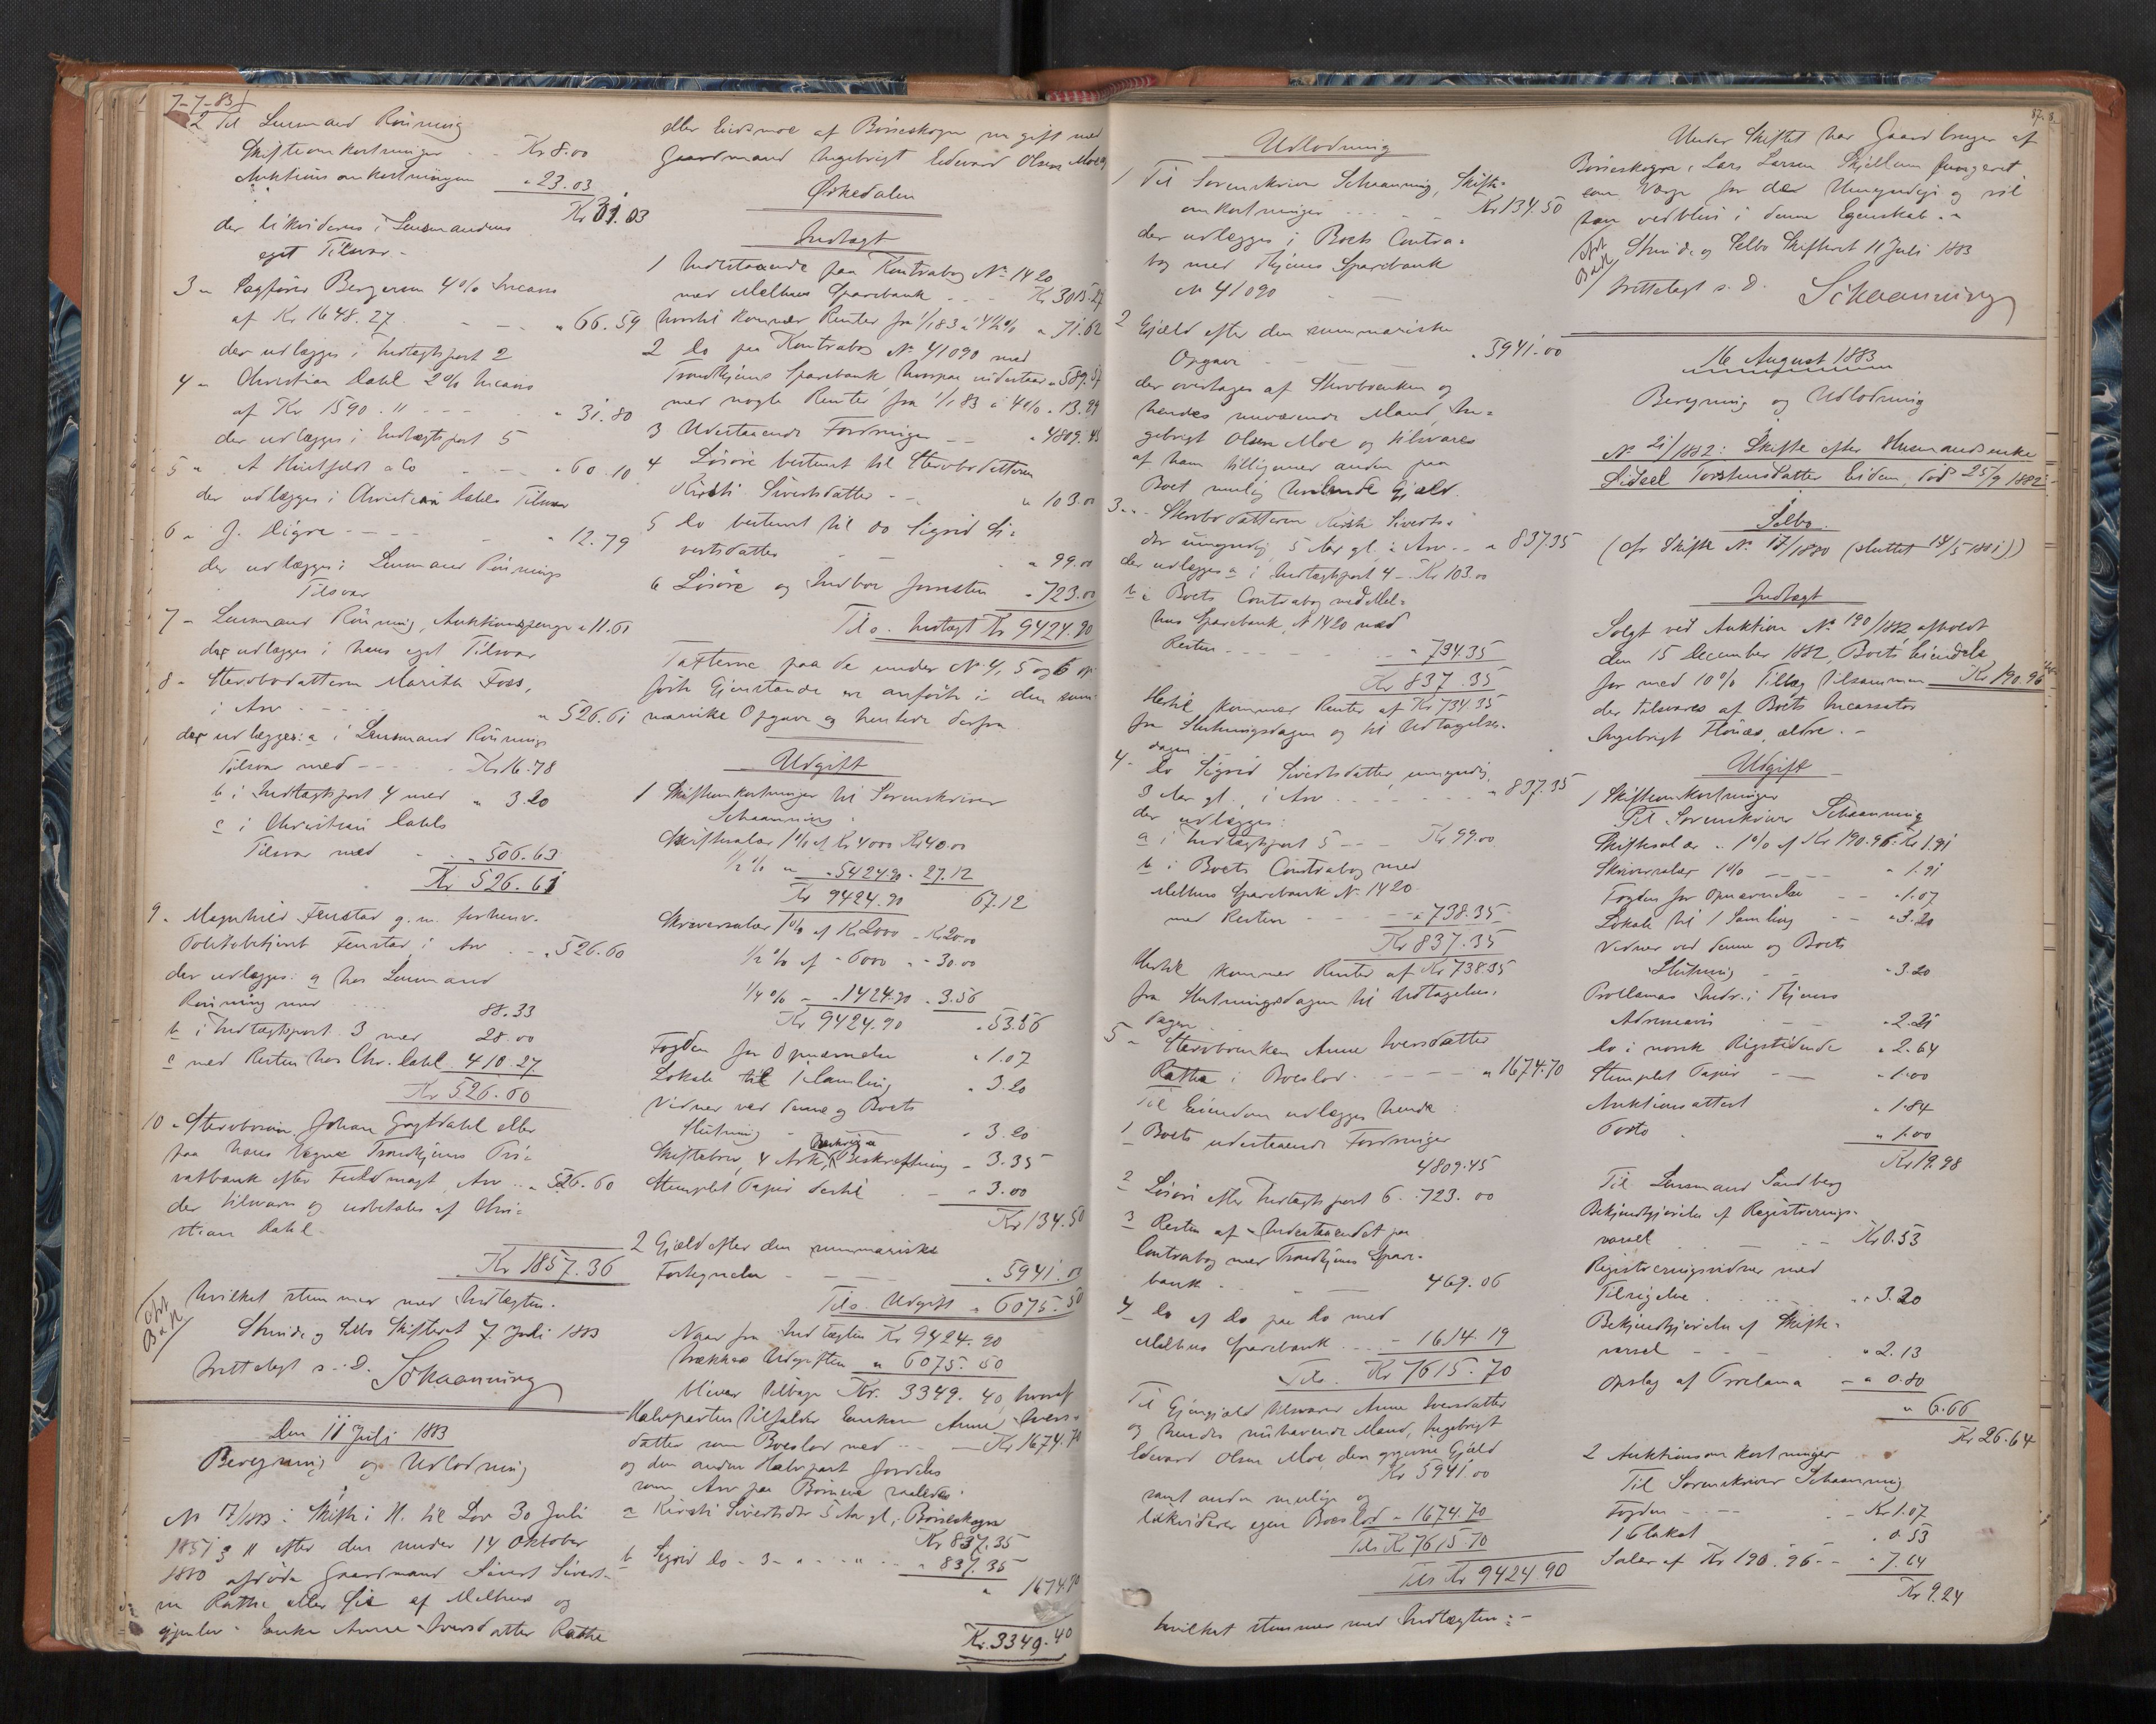 7-7-83
2 Til Lensmand Rönning
Skifteomkostninger - - Kr 8.00
Auktionsomkostningen " 23.03
Kr 31.03
der likvideres i Lensmandens
eget Tilsvar -
3 " Sagfører Bergersen 4% Incasso
af Kr 1648.27 - - - " 66.59
der udlægges i Indtægtspost 2
4 " Christian Dahl 2% Incasso
af Kr 1590. " - - - " 31.80
der udlægges i Indtægtspost 5
5 " A Huitfeldt & Co - - - " 60.10
der udlægges i Christian Dahls Tilsvar
6 " J. Digre - - - - " 12.79
der udlægges i Lensmand Rönnings
Tilsvar
7 - Lensmand Rönning, Auktionspenge " 11.61
der udlægges i hans eget Tilsvar
8 - Stervbodatteren Marith Foss,
i Arv - - - - " 526.61
der udlægges: a i Lensmand Rönnings
Tilsvar med - - - - Kr 16.78
b i Indtægtspost 4 med " 3.20
c i Christian Dahls
Tilsvar med - " 506.63
Kr 526.61
9 - Magnhild Fenstad g. m. forhenv.
Politibetjent Fenstad, i Arv - - " 526.60
der udlægges: a hos Lensmand
Rönning med 88.33
b i Indtægtspost 3 med 28.00
c med Resten hos Chr. Dahl 410.27
Kr 526.60
10 " Stervbosön Johan Gogstdahl eller
paa hans Vegne Trondhjems Pri=
vatbank efter Fuldmagt, Arv - " 526.60
der tilsvares og udbetales af Chri=
stian Dahl -
Kr 1857.36
hvilket stemmer med Indtægten.
Strinde og Selbo Skifteret 7 Juli 1883
Rettelagt s. D. Schaanning
Den 11 Juli 1883
Beregning og Udlodning
i
No 17/1883: Skifte i H. til Lov 30 Juli
1851 § 11 efter den under 14 Oktober
1880 afdöde Gaardmand Sivert Sivert=
sen Rathe eller Gie af Melhus og
gjenlev. Enke Anne Iversdatter Rathe
eller Eidsmoe af Börseskogn nu gift med
Gaardmand Ingebrigt Edevard Olsen Moe,
Ørkedalen
Indtægt
1 Indestaaende paa Kontrabog No 1420
med Melhus Sparebank - - - Kr 3015.27
hvortil kommer Renter fra 1/1 83 à 4½% " 71.62
2 Do paa Kontrabog No 41090 med
Trondhjems Sparebank, hvorpaa indestaar " 589.57
med nogle Renter fra 1/1 83 à 4% " 13.99
3 Udestaaende Fordringer - - " 4809.45
4 Lösöre bestemt til Stervbodatteren
Kirsti Sivertsdatter - - " 103.00
5 Do bestemt til do Sigrid Si=
vertsdatter - - " 99.00
6 Lösöre og Indbo forresten " 723.00
Tils. Indtægt Kr 9424.90
Taxterne paa de under No 4, 5 og 6 op=
förte Gjenstande er anförte i den sum=
mariske Opgave og hentede derfra
Udgift
1 Skifteomkostninger til Sorenskriver
Schaanning:
Skiftesalær 1% af Kr 4000 Kr 40.00
½ % " " 5424.90 " 27.12
Kr 9424.90 67.12
Skriversalær 1% af Kr 2000 - Kr 20.00
½ % af - 6000 " - 30.00
¼ % " - 1424.90 " 3.56
Kr 9424.90 " 53.56
Fogden for Opnævnelse " 1.07
Lokale til 1 Samling " 3.20
Vidner ved denne og Boets
Slutning - " 3.20
Skiftebrev, 4 Ark, Beskrivelse Beskræftning - 3.35
Stemplet Papir dertil - " 3.00
Kr 134.50
2 Gjæld efter den summariske
Fortegnelse - - - " 5941.00
Tils. Udgift " 6075.50
Naar fra Indtægten Kr 9424.90
trækkes Udgiften " 6075.50
bliver tilbage Kr. 3349.40, hvoraf
Halvparten tilfalder Enken Anne Ivers=
datter som Boeslod med - - - Kr 1674.70
og den anden Halvpart fordeles
som Arv paa Börnene saaledes:
a Kirsti Sivertsdtr 5 Aar gl., Börseskogn
Kr 837.35
b Sigrid Do - 3 - " - " - " 837.35
" 1674.70
Kr. 3349.40
Udlodning
1 Til Sorenskriver Schaanning, Skifte=
omkostninger - - - - Kr 134.50
der udlægges i Boets Contra=
bog med Thjems Sparebank
No 41090 - -
2 Gjæld efter den summariske
Opgave - - - - " 5941.00
der overtages af Stervboenken og
hendes nuværende Mand, In=
gebrigt Olsen Moe og tilsvares
af ham tilligemed anden paa
Boet mulig hvilende Gjæld.
3 " - Stervbodatteren Kirsti Siverts=
dtr umyndig, 5 Aar gl. i Arv - - " 837.35
der udlægges a i Indtægtspost 4 - Kr 103.00
b i Boets Contrabog med Mel=
hus Sparebank, No 1420 med
Resten - - - - " 734.35
Kr 837.35
Hertil kommer Renter af Kr 734.35
fra Slutningsdagen og til Udtagelses=
dagen
4 - Do Sigrid Sivertsdatter, umyndig,
3 Aar gl., i Arv - - - - " 837.35
der udlægges:
a i Indtægtspost 5 - - - Kr 99.00
b i Boets Contrabog med
Melhus Sparebank No 1420
med Resten - - - - " 738.35
Kr 837.35
Hertil kommer Renter af Kr 738.35
fra Slutningsdagen til Udtagelses=
dagen
5 - Stervboenken Anne Iversdatter
Rathe i Boeslod - - - - - " 1674.70
Til Eiendom udlægges hende:
1 Boets udestaaende Fordringer
4809.45
2 Lösöre efter Indtægtspost 6 - 723.00
3 Resten af Indestaaendet paa
Contrabog med Trondhjems Spare=
bank - - - 469.06
4 Do af do paa do med
Melhus Sparebank - - - - 1614.19
Tils. Kr 7615.70
Til Gjengjæld tilsvarer Anne Iversdatter
og hendes nuhavende Mand, Ingebrigt
Edevard Olsen Moe den opgivne Gjæld
Kr 5941.00
samt anden mulig og
likviderer egen Boeslod - 1674.70
Tils Kr 7615.70
Tils Kr 9424.90
hvilket stemmer med Indtægten: -
87. 8.
Under Skiftet har Gaardbruger af
Börseskogn, Lars Larsen Skjellum fungeret
som Værge for den Umyndige og vil
han vedblive i denne Egenskab. -
Strinde og Selbo Skifteret 11 Juli 1883
Rettelagt s. D. Schaanning
16 August 1883
Beregning og Udlodning
i
No 21/1882: Skifte efter Husmandsenke
Sidsel Torstensdatter Eidem, död 25/9 1882
i
Selbo
(cfr Skifte No 17/1880 (sluttet 14/5 1881))
Indtægt
Solgt ved Auktion No 190/1882 afholdt
den 15 December 1882, Boets Eiendele
for med 10% Tillæg tilsammen Kr 190.96
der tilsvares af Boets Incassator
Ingebrigt Flönæs, ældre. -
Udgift
1 Skifteomkostninger
Til Sorenskriver Schaanning
Skiftesalær " 1% af Kr 190.96: Kr 1.91
Skriversalær 1% - - - " 1.91
Fogden for Opnævnelse - - " 1.07
Lokale til 1 Samling - - " 3.20
Vidner ved denne og Boets
Slutning - - " 3.20
Proclamas Indr. i Thjems
Adresseavis - - " 2.21
Do i norsk Rigstidende " 2.64
Stemplet Papir - - " 1.00
Auktionsattest " 1.84
Porto - " 1.00
Kr 19.98
Til Lensmand Sandberg
Bekjendtgjörelse af Registrerings=
varsel - - - Kr 0.53
Registreringsvidner med
Tilsigelse - - - - " 3.20
Bekjendtgjörelse af Skifte=
varsel - - - " 2.13
Opslag af Proclama - " 0.80
" 6.66
Kr 26.64
2 Auktionsomkostninger
Til Sorenskriver Schaanning
Fogden - - - - - Kr 1.07
1 Plakat - 0.53
Salær af Kr 190.96 - - " 7.64
Kr 9.24